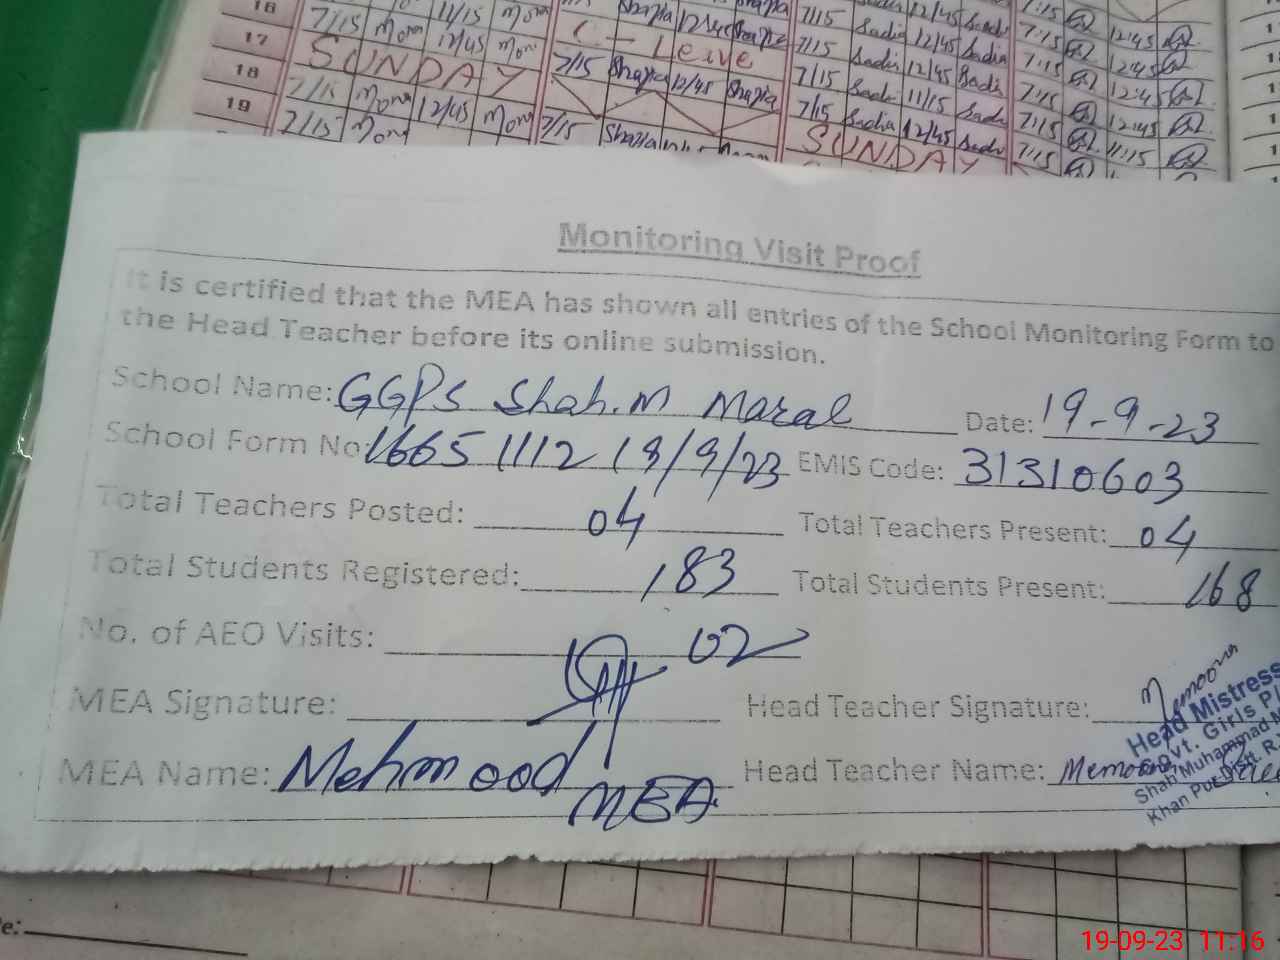 16 7/15 Mona 11/15 Mona Shazia 12/45 Shazia 7/15 Sadia 12/45 Sadia 7:15 12:45
17 7/15 Mona 12/45 Mona C - Leave 7/15 Sadia 12/45 Sadia 7:15 12:45
18 SUNDAY 7/15 Shazia 12/45 Shazia 7/15 Sadi 11/15 Sadia 7:15 12:45
19 7/15 Mona 12/45 Mona 7/15 Sadia 12/45 Sadi 7:15 12:45
7/15 Mona 7/15 Shazia SUNDAY 7:15 11:15
Monitoring Visit Proof
It is certified that the MEA has shown all entries of the School Monitoring Form to
the Head Teacher before its online submission.
School Name: GGPS Shah.M Maral Date: 19-9-23
School Form No: 16651112 19/9/23 EMIS Code: 31310603
Total Teachers Posted: 04 Total Teachers Present: 04
Total Students Registered: 183 Total Students Present: 168
No. of AEO Visits: 02
MEA Signature: Head Teacher Signature: Memoona
MEA Name: Mehmood Head Teacher Name: Memoona
MEA
Head Mistress
Govt. Girls P
Shah Muhammad M
Khan Pur Distt. R.
19-09-23 11:16